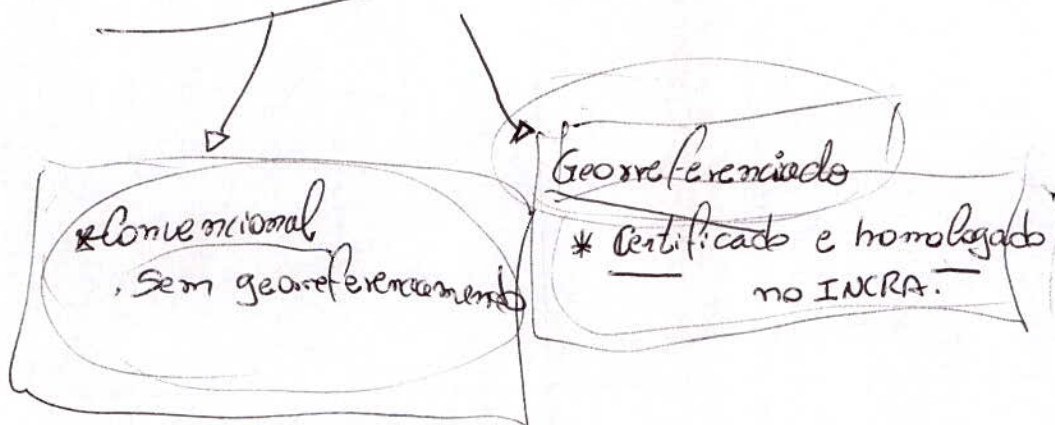 * Convencional
. Sem georreferenciamento
Georreferenciado
* Certificado e homologado
no INCRA.